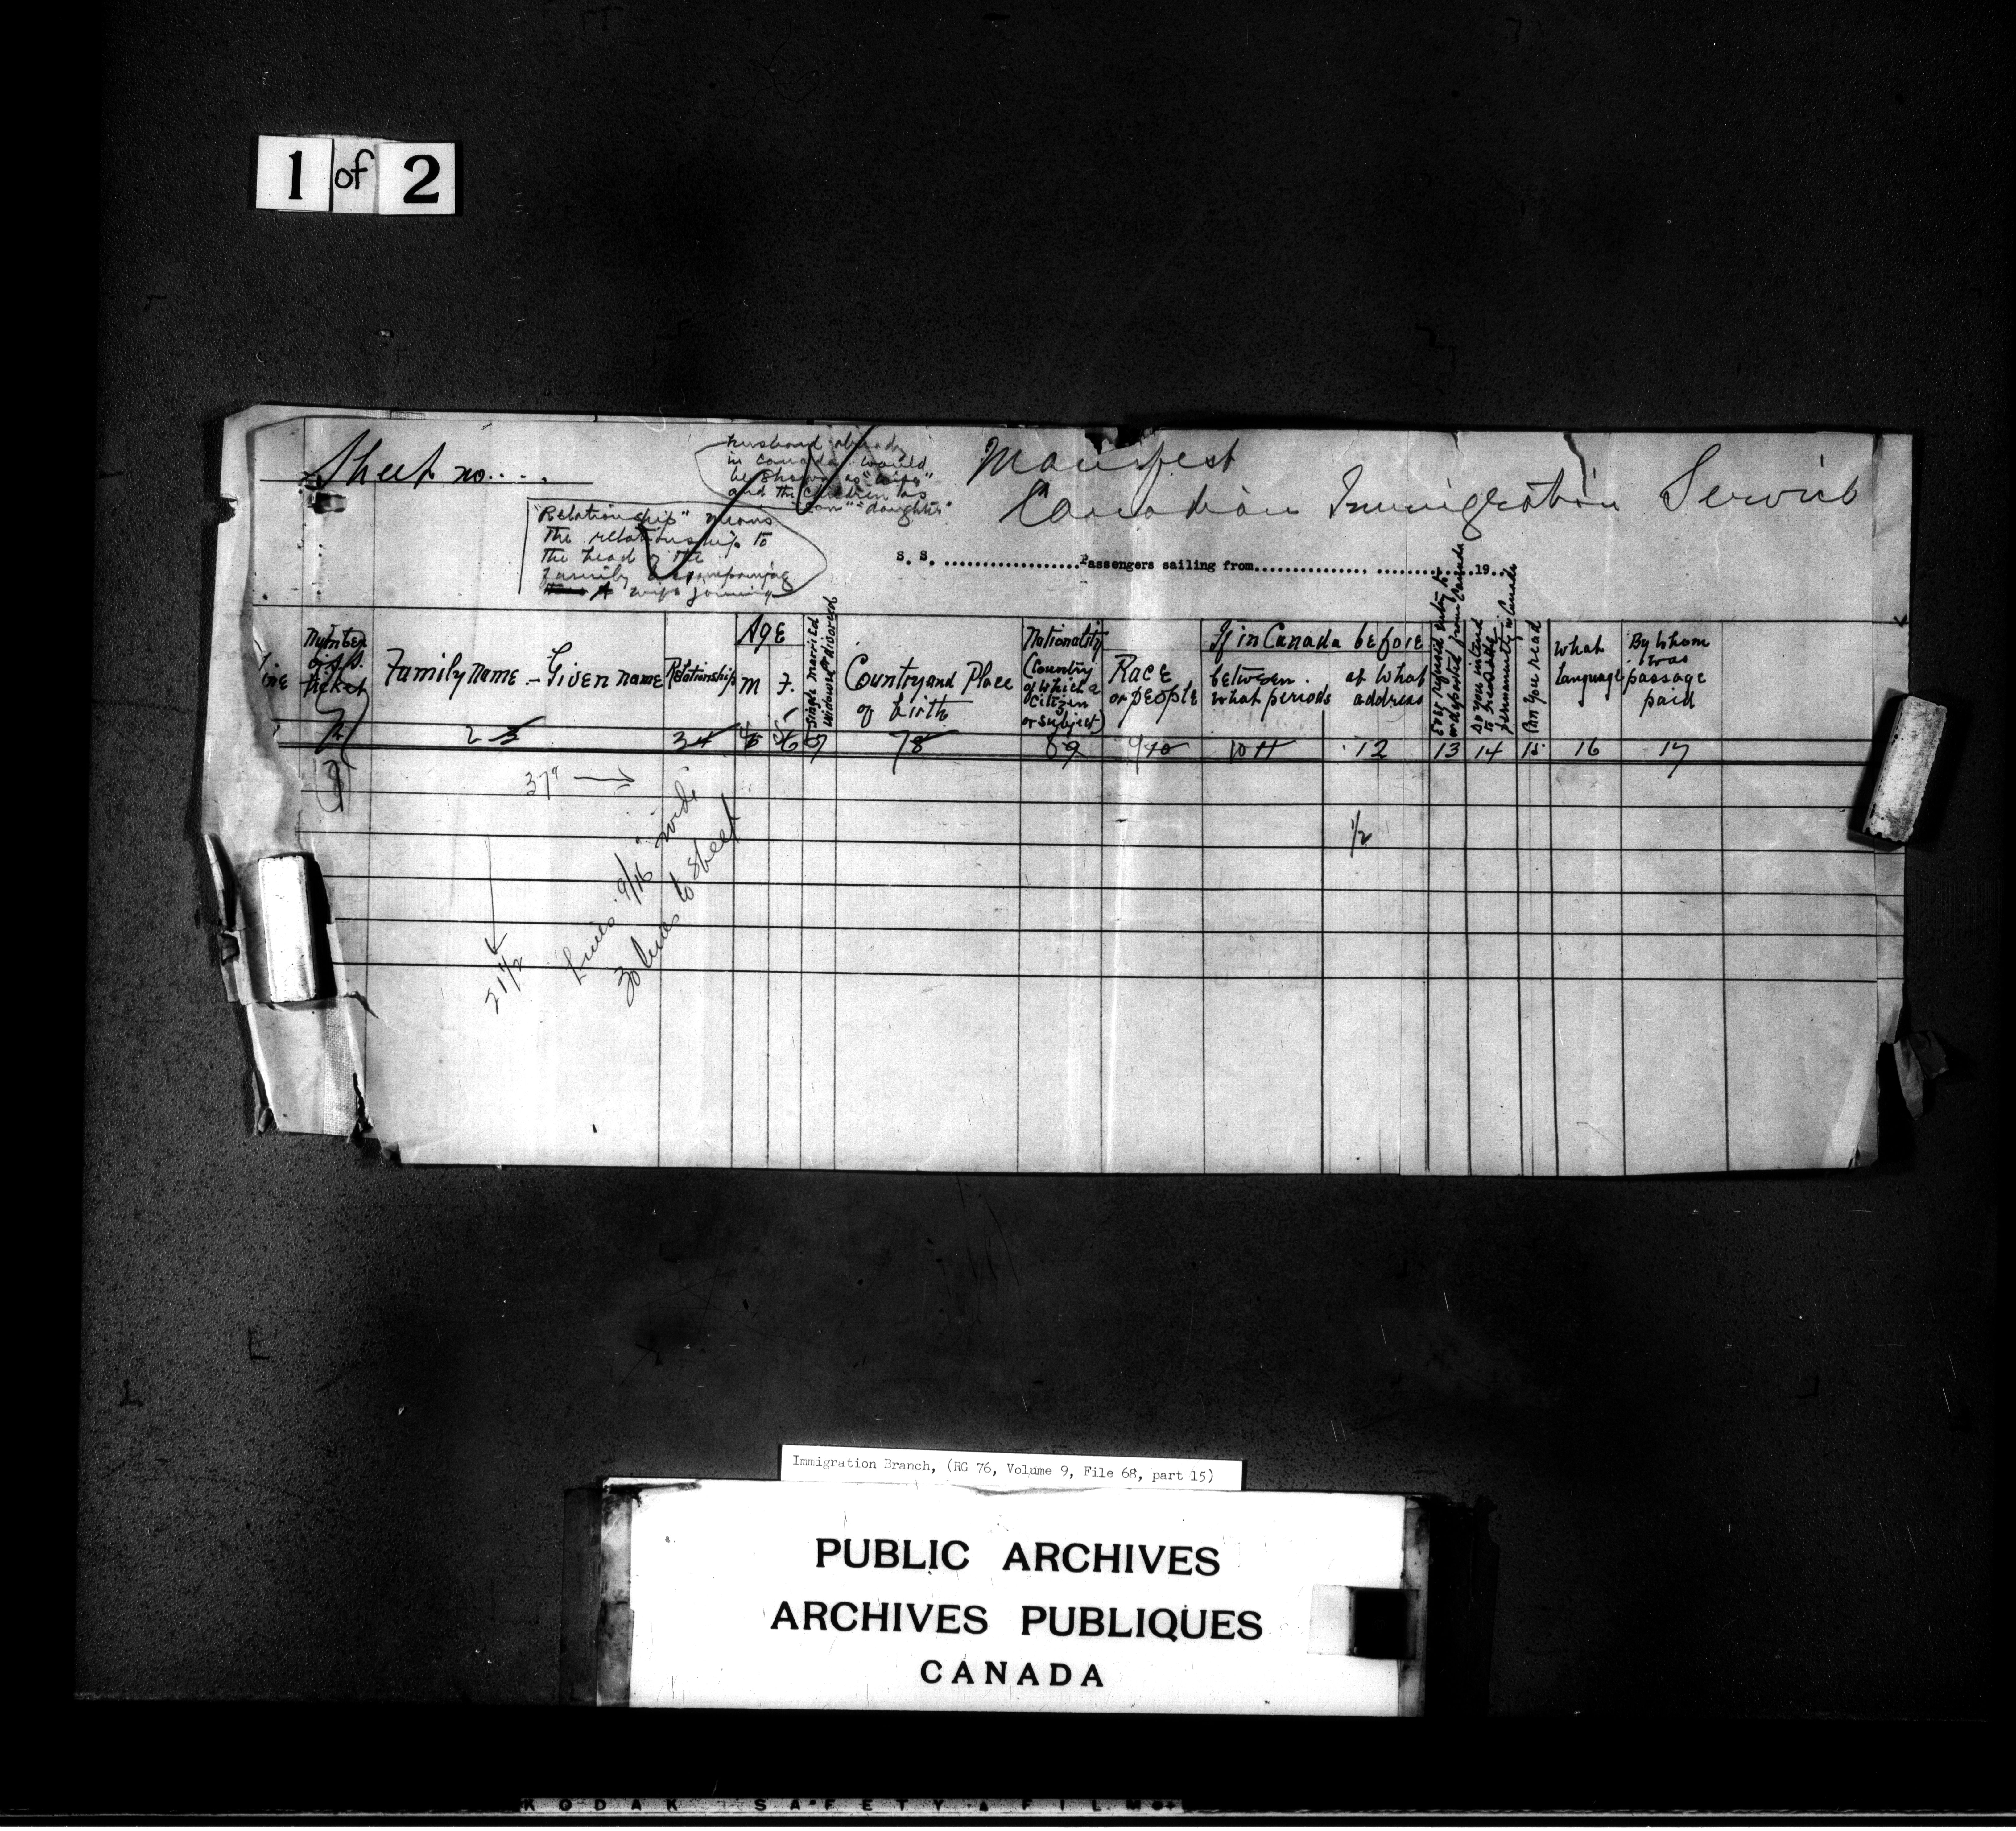 1 of 2
Sheet no....
husband already
in Canada would
be shown as "wife"
and the children as
"son" "daughter"
Manifest
Canadian Immigration Service
"Relationship" means
the relationship to
the head of the
family accompanying
wife joining
S. S. ....................Passengers sailing from................ ..............19...
Number
ticket
Family name - Given name
Relationship
Age
M F.
Single married
widowed or divorced
Country and Place
of birth
Nationality
(Country
of which a
citizen
or subject)
Race
or people
If in Canada before
between
what periods
at what
address
Ever refused entry to
or deported from Canada
Do you intend
to reside
permanently in Canada
Can you read
what
language
By whom
was
passage
paid
2 3 3 4 7 8 8 9 9 10 10 11 12 13 14 15 16 17
37" →
1/2
21 1/2
Lines 9/16" wide
30 lines to sheet
Immigration Branch, (RG 76, Volume 9, File 68, part 15)
PUBLIC ARCHIVES
ARCHIVES PUBLIQUES
CANADA
KODAK SAFETY FILM